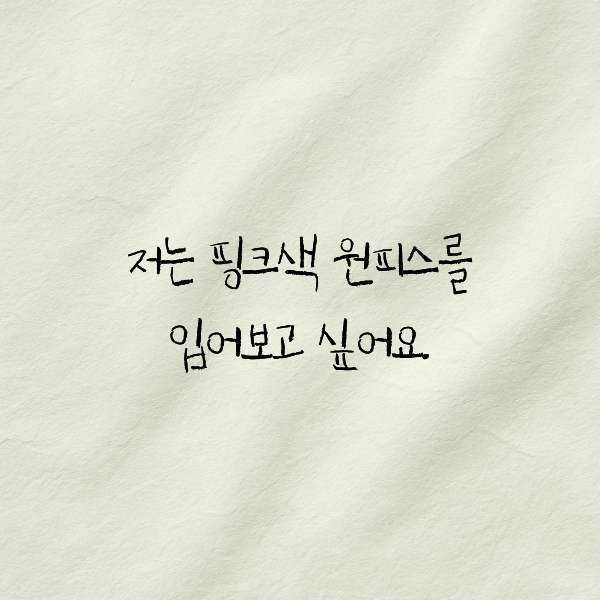 저는 핑크색 원피스를
입어보고 싶어요.